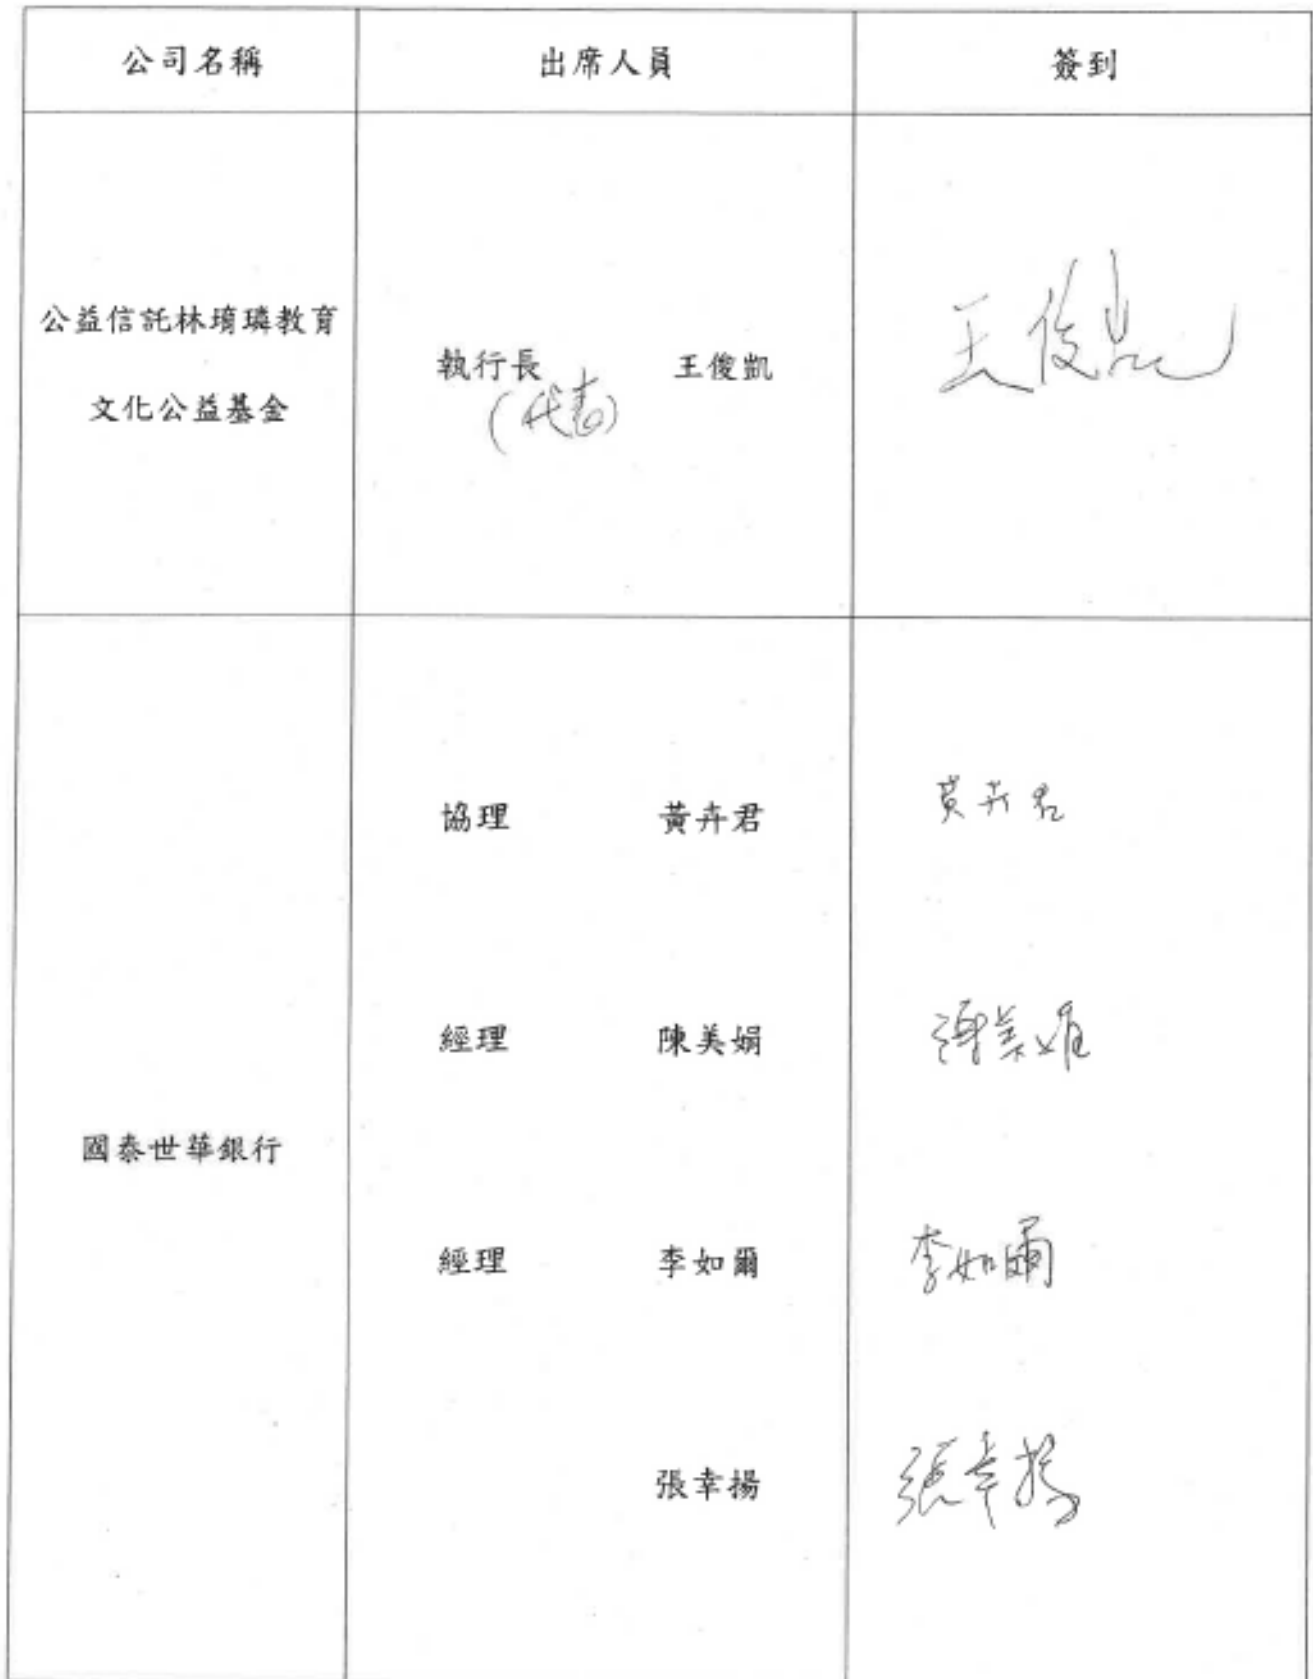 公司名稱 出席人員 簽到
公益信託林堉璘教育
文化公益基金
執行長 王俊凱 王俊凱
(代表)
國泰世華銀行
協理 黃卉君 黃卉君
經理 陳美娟 陳美娟
經理 李如爾 李如爾
張幸揚 張幸揚